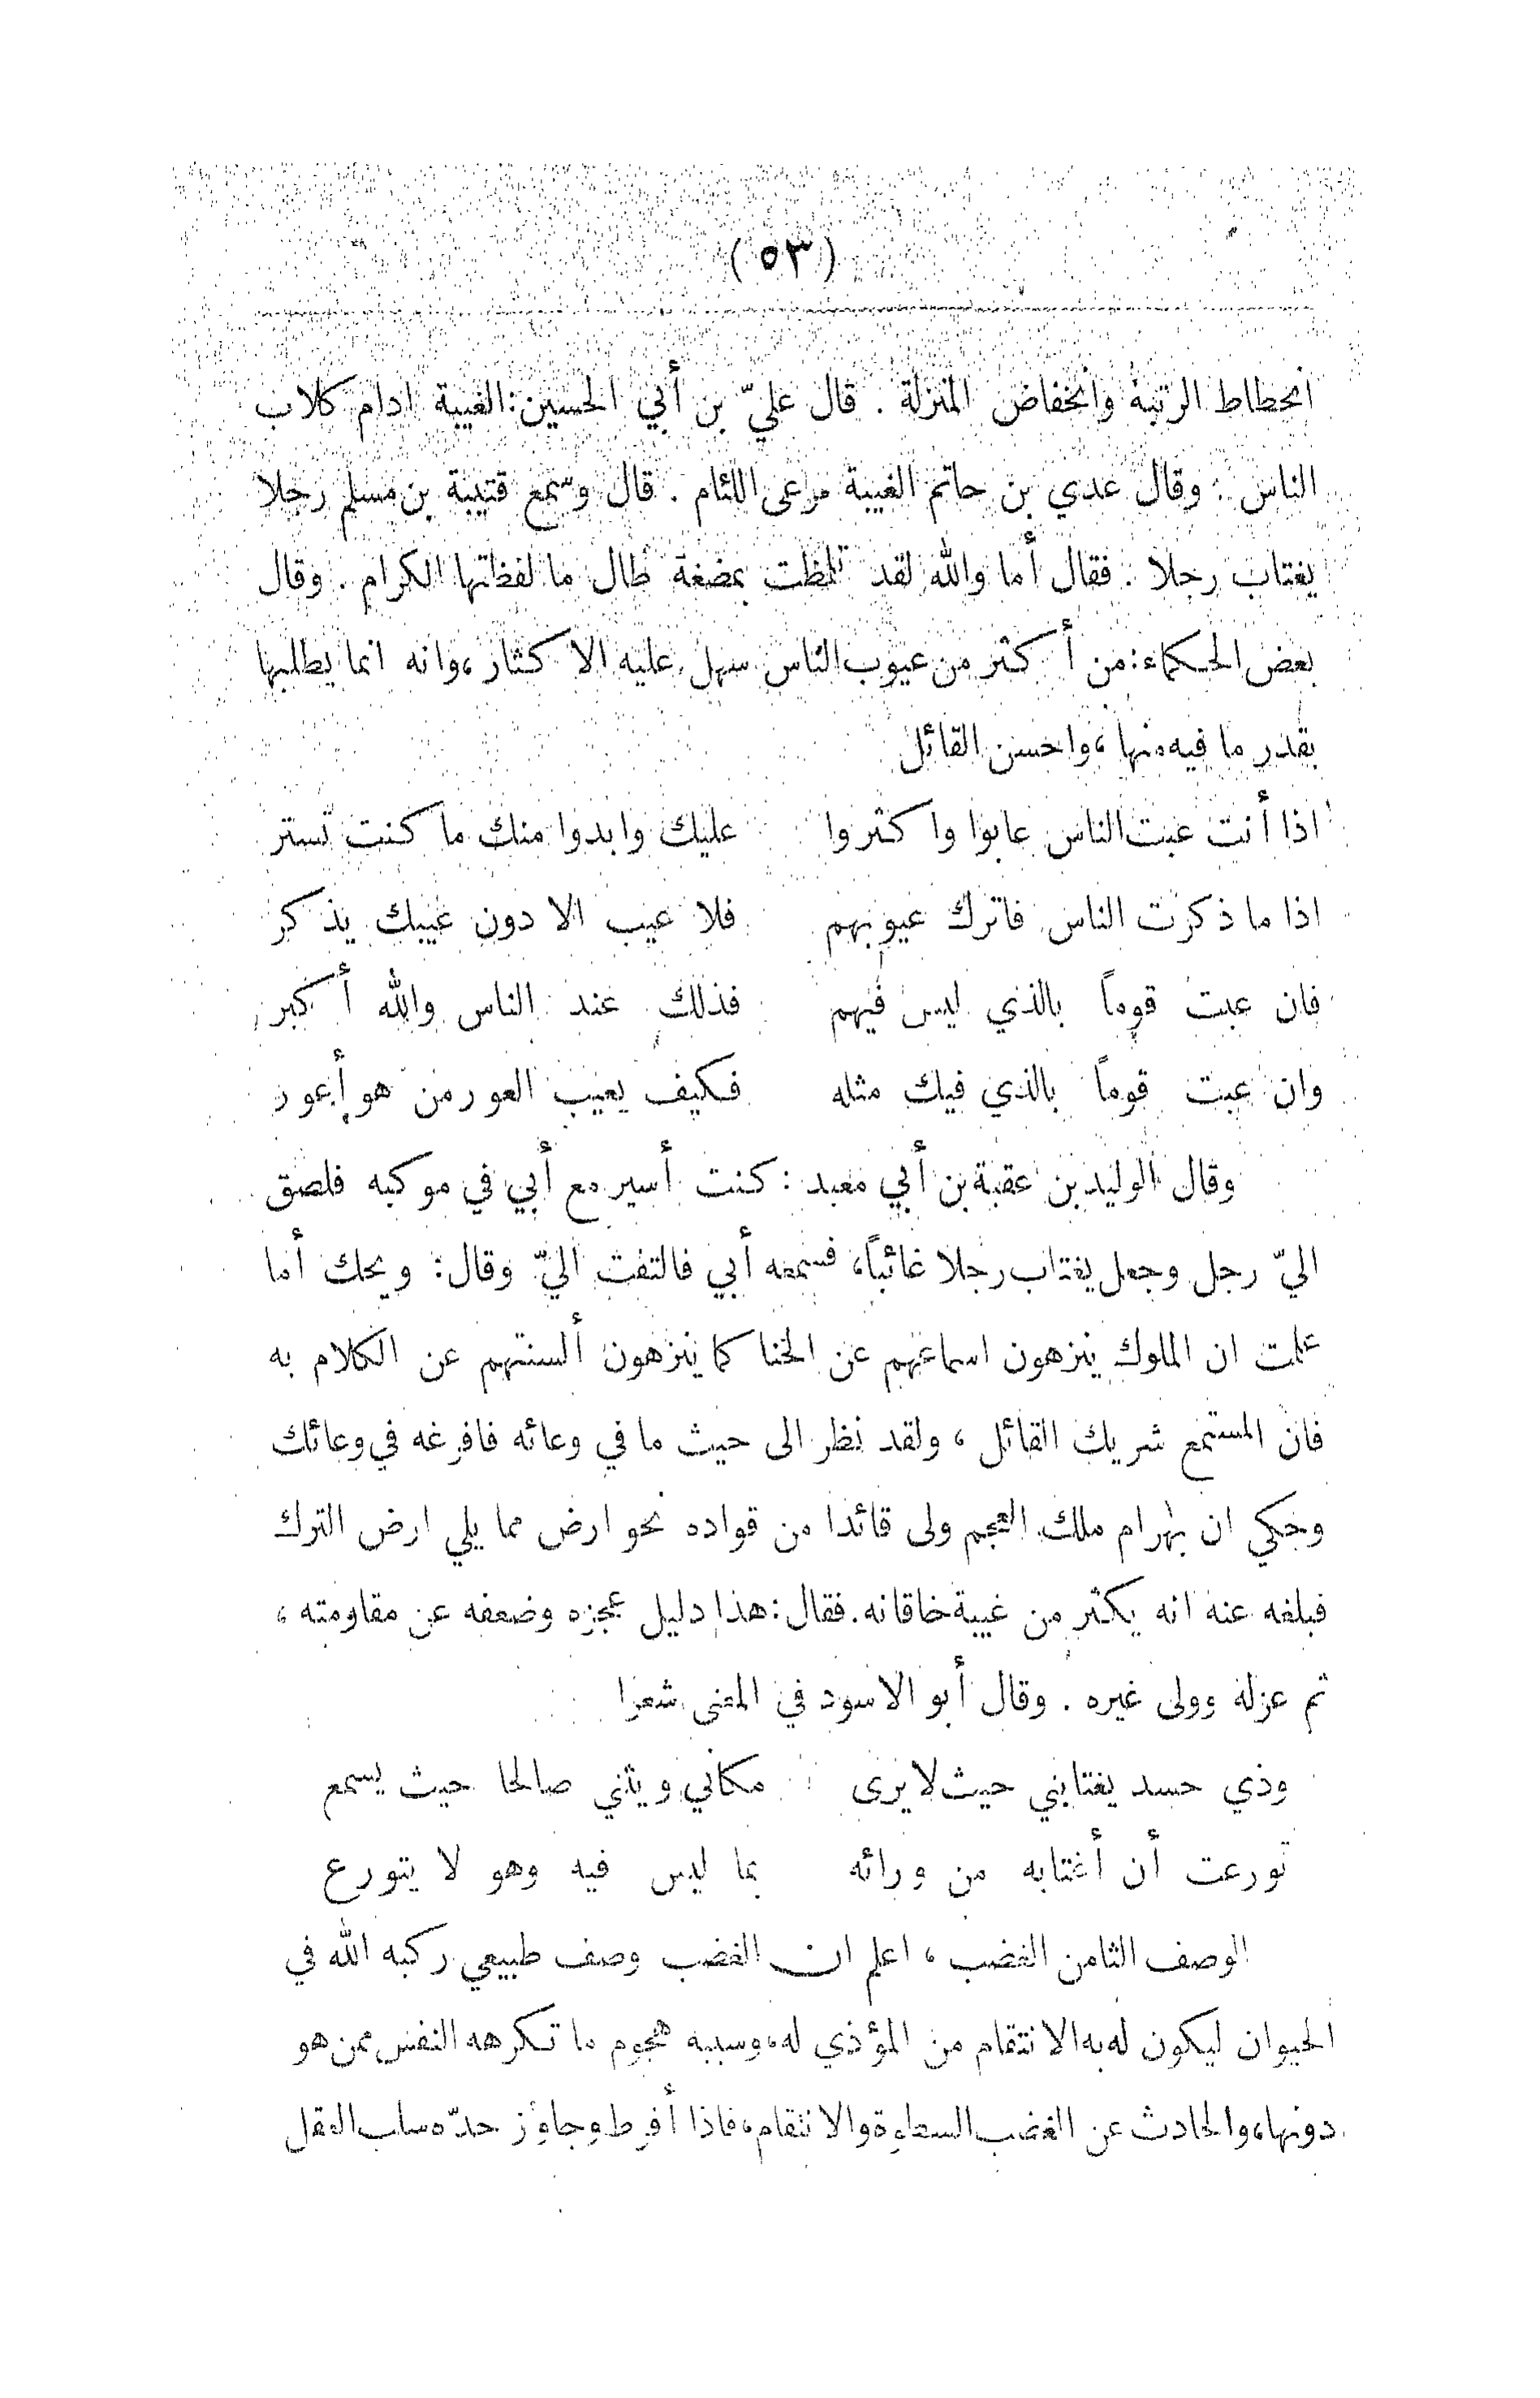 (٥٣)
انحطاط الرتبة وانخفاض المنزلة . قال عليّ بن أبي الحسين: الغيبة ادام كلاب
الناس . وقال عدي بن حاتم الغيبة مرعى اللئام . قال وسمع قتيبة بن مسلم رجلا
يغتاب رجلا . فقال أما والله لقد تلمظت بمضغة طال ما لفظتها الكرام . وقال
بعض الحكماء: من أكثر من عيوب الناس سهل عليه الاكثار، وانه انما يطلبها
بقدر ما فيه منها، واحسن القائل
اذا أنت عبت الناس عابوا واكثروا عليك وابدوا منك ما كنت تستر
اذا ما ذكرت الناس فاترك عيوبهم فلا عيب الا دون عيبك يذكر
فان عبت قوماً بالذي ليس فيهم فذلك عند الناس والله أكبر
وان عبت قوماً بالذي فيك مثله فكيف يعيب العور من هو أعور
وقال الوليد بن عقبة بن أبي معبد : كنت أسير مع أبي في موكبه فلصق
اليّ رجل وجعل يغتاب رجلا غائباً، فسمعه أبي فالتفت اليّ وقال: ويحك أما
علمت ان الملوك ينزهون اسماعهم عن الخنا كما ينزهون ألسنتهم عن الكلام به
فان المستمع شريك القائل ، ولقد نظر الى حيث ما في وعائه فافرغه في وعائك
وحكي ان بهرام ملك العجم ولى قائدا من قواده نحو ارض مما يلي ارض الترك
فبلغه عنه انه يكثر من غيبة خاقانه. فقال: هذا دليل عجزه وضعفه عن مقاومته ،
ثم عزله وولى غيره . وقال أبو الاسود في المعنى شعرا
وذي حسد يغتابني حيث لا يرى مكاني ويثني صالحا حيث يسمع
تورعت أن أغتابه من ورائه بما ليس فيه وهو لا يتورع
الوصف الثامن الغضب ، اعلم ان الغضب وصف طبيعي ركبه الله في
الحيوان ليكون له به الانتقام من المؤذي له، وسببه هجوم ما تكرهه النفس ممن هو
دونها، والحادث عن الغضب السطوة والانتقام، فاذا أفرط وجاوز حدّه سلب العقل